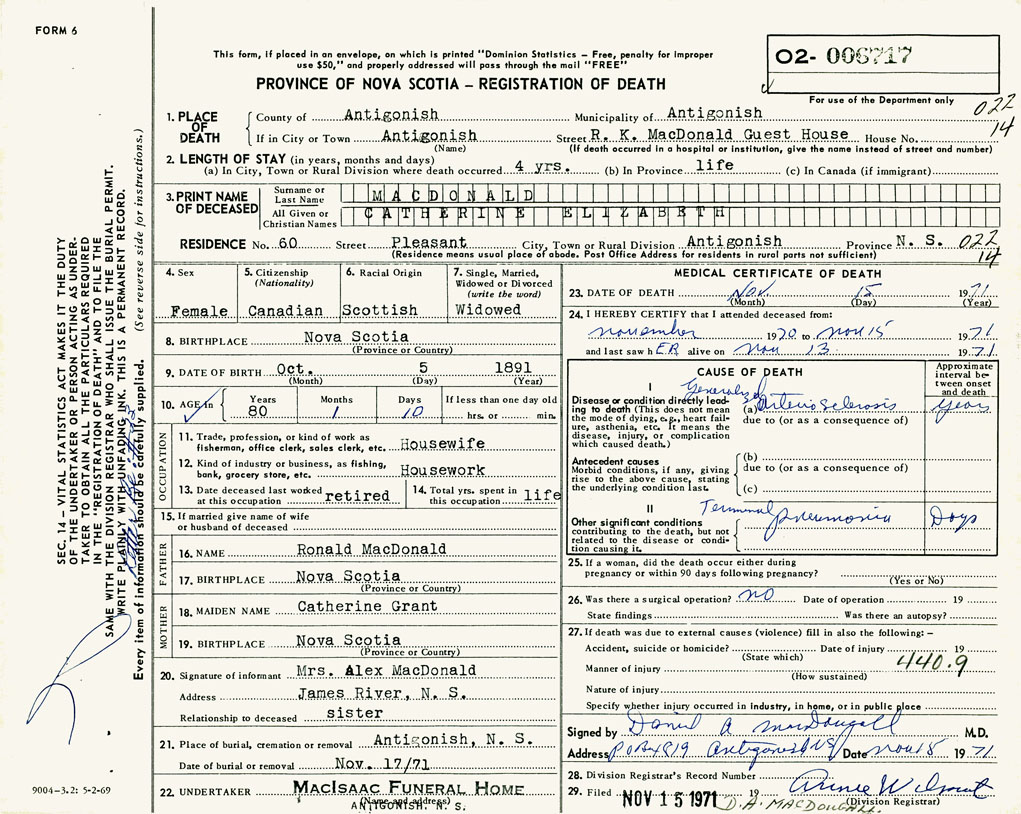 FORM 6
This form, if placed in an envelope, on which is printed "Dominion Statistics – Free, penalty for improper
use $50," and properly addressed will pass through the mail "FREE"
PROVINCE OF NOVA SCOTIA – REGISTRATION OF DEATH
02- 006717
For use of the Department only
022
14
1. PLACE OF DEATH
County of Antigonish Municipality of Antigonish
If in City or Town Antigonish Street R. K. MacDonald Guest House House No.
(Name) (If death occurred in a hospital or institution, give the name instead of street and number)
2. LENGTH OF STAY (in years, months and days)
(a) In City, Town or Rural Division where death occurred 4 yrs. (b) In Province life (c) In Canada (if immigrant)
3. PRINT NAME OF DECEASED
Surname or Last Name MACDONALD
All Given or Christian Names CATHERINE ELIZABETH
RESIDENCE No. 60 Street Pleasant City, Town or Rural Division Antigonish Province N. S. 022
(Residence means usual place of abode. Post Office Address for residents in rural parts not sufficient) 14
4. Sex Female
5. Citizenship (Nationality) Canadian
6. Racial Origin Scottish
7. Single, Married, Widowed or Divorced (write the word) Widowed
8. BIRTHPLACE Nova Scotia
(Province or Country)
9. DATE OF BIRTH Oct. 5 1891
(Month) (Day) (Year)
10. AGE in Years 80 Months 1 Days 10 If less than one day old hrs. or min.
OCCUPATION
11. Trade, profession, or kind of work as
fisherman, office clerk, sales clerk, etc. Housewife
12. Kind of industry or business, as fishing,
bank, grocery store, etc. Housework
13. Date deceased last worked at this occupation retired
14. Total yrs. spent in this occupation life
15. If married give name of wife
or husband of deceased
FATHER
16. NAME Ronald MacDonald
17. BIRTHPLACE Nova Scotia
(Province or Country)
MOTHER
18. MAIDEN NAME Catherine Grant
19. BIRTHPLACE Nova Scotia
(Province or Country)
20. Signature of informant Mrs. Alex MacDonald
Address James River, N. S.
Relationship to deceased sister
21. Place of burial, cremation or removal Antigonish, N. S.
Date of burial or removal Nov. 17/71
22. UNDERTAKER MacIsaac Funeral Home
(Name and address)
ANTIGONISH, N. S.
MEDICAL CERTIFICATE OF DEATH
23. DATE OF DEATH Nov. 15 1971
(Month) (Day) (Year)
24. I HEREBY CERTIFY that I attended deceased from:
november 1970 to nov 15 1971
and last saw hER alive on nov 13 1971
CAUSE OF DEATH
Approximate interval between onset and death
I
Disease or condition directly leading to death (This does not
mean the mode of dying, e.g., heart failure,
asthenia, etc. It means the
disease, injury, or complication
which caused death.)
Generalized
(a) Arterio sclerosis years
due to (or as a consequence of)
Antecedent causes
Morbid conditions, if any, giving
rise to the above cause, stating
the underlying condition last.
(b)
due to (or as a consequence of)
(c)
II
Other significant conditions
contributing to the death, but not
related to the disease or condition
causing it.
Terminal pneumonia Days
25. If a woman, did the death occur either during
pregnancy or within 90 days following pregnancy?
(Yes or No)
26. Was there a surgical operation? NO Date of operation 19
State findings Was there an autopsy?
27. If death was due to external causes (violence) fill in also the following: –
Accident, suicide or homicide? Date of injury 19
(State which)
Manner of injury 440.9
(How sustained)
Nature of injury
Specify whether injury occurred in industry, in home, or in public place
Signed by Daniel A MacDougall M.D.
Address P O Box 819 Antigonish NS Date nov 15 1971
28. Division Registrar's Record Number
29. Filed NOV 15 1971 19
(Division Registrar)
D. A. MACDOUGALL
SEC. 14 – VITAL STATISTICS ACT MAKES IT THE DUTY
OF THE UNDERTAKER OR PERSON ACTING AS UNDER-
TAKER TO OBTAIN ALL THE PARTICULARS REQUIRED
IN THE "REGISTRATION OF DEATH" AND TO FILE THE
SAME WITH THE DIVISION REGISTRAR WHO SHALL ISSUE THE BURIAL PERMIT.
WRITE PLAINLY WITH UNFADING INK. THIS IS A PERMANENT RECORD.
Every item of information should be carefully supplied. (See reverse side for instructions.)
9004-3.2: 5-2-69